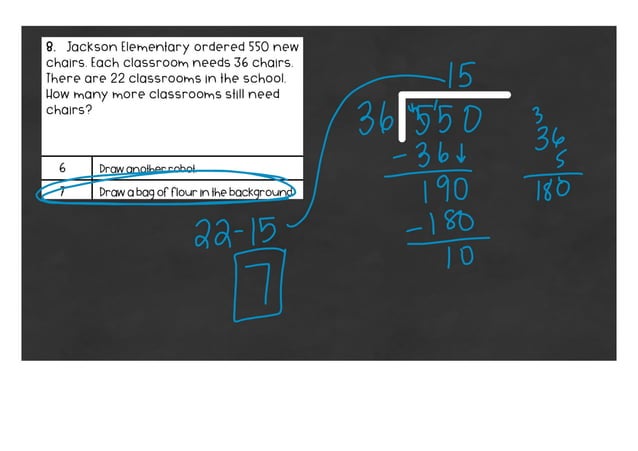 8. Jackson Elementary ordered 550 new
chairs. Each classroom needs 36 chairs.
There are 22 classrooms in the school.
How many more classrooms still need
chairs?
6 Draw another robot
7 Draw a bag of flour in the background
22-15
7
15
36 550
-36
190
-180
10
3
36
5
180